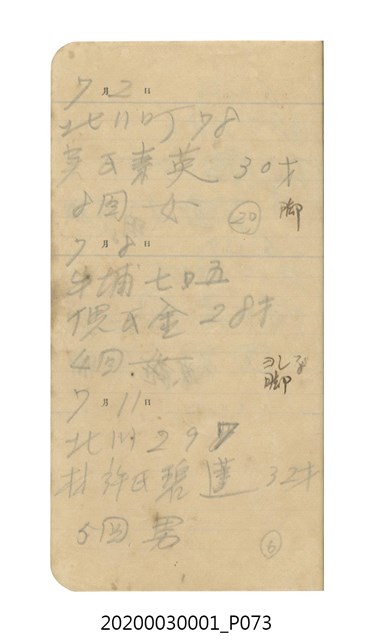 7月2日
北川町78
黄氏秦英 30才
8回 女 ⑳ 脚
7月8日
牛埔七ロ五
偎氏金 28才
4回 女
脚
7月11日
北川297
林許氏碧蓮 32才
5回 男 ⑥
20200030001_P073